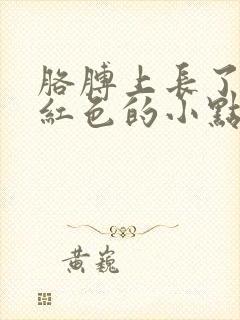 胳膊上長了
紅色的小點
黃巍